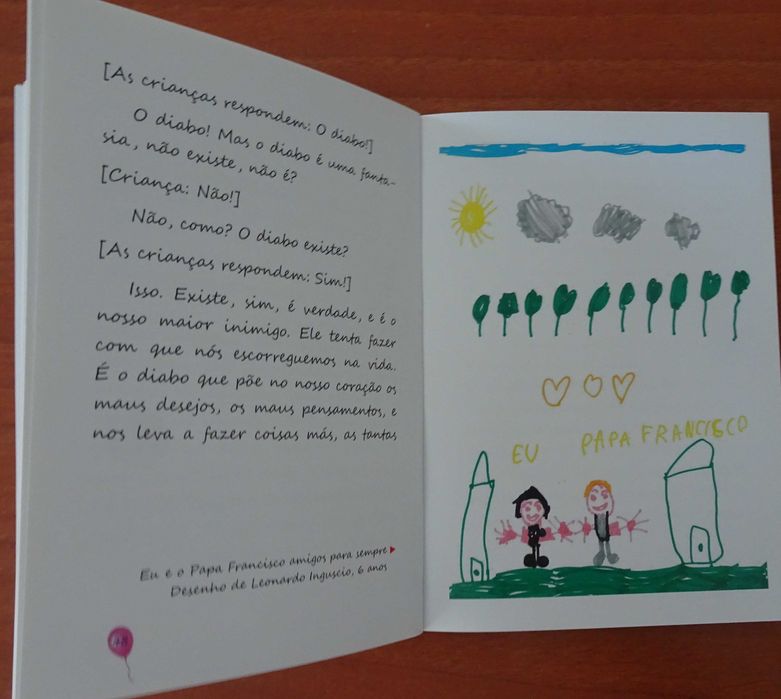 [As crianças respondem: O diabo!]
O diabo! Mas o diabo é uma fanta-
sia, não existe, não é?
[Criança: Não!]
Não, como? O diabo existe?
[As crianças respondem: Sim!]
Isso. Existe, sim, é verdade, e é o
nosso maior inimigo. Ele tenta fazer
com que nós escorreguemos na vida.
É o diabo que põe no nosso coração os
maus desejos, os maus pensamentos, e
nos leva a fazer coisas más, as tantas
Eu e o Papa Francisco amigos para sempre
Desenho de Leonardo Inguscio, 6 anos
48
EU PAPA FRANCISCO